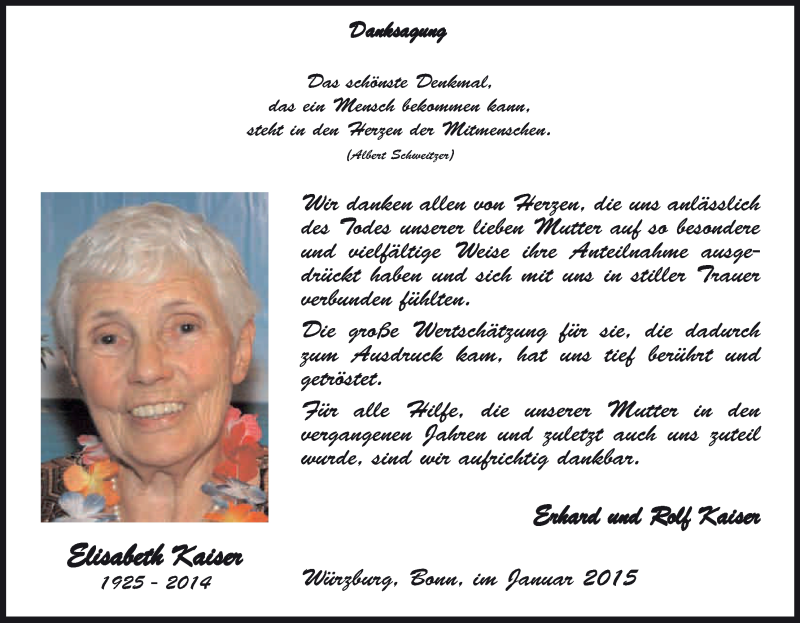 Danksagung
Das schönste Denkmal,
das ein Mensch bekommen kann,
steht in den Herzen der Mitmenschen.
(Albert Schweitzer)
Wir danken allen von Herzen, die uns anlässlich
des Todes unserer lieben Mutter auf so besondere
und vielfältige Weise ihre Anteilnahme ausge-
drückt haben und sich mit uns in stiller Trauer
verbunden fühlten.
Die große Wertschätzung für sie, die dadurch
zum Ausdruck kam, hat uns tief berührt und
getröstet.
Für alle Hilfe, die unserer Mutter in den
vergangenen Jahren und zuletzt auch uns zuteil
wurde, sind wir aufrichtig dankbar.
Erhard und Rolf Kaiser
Elisabeth Kaiser
1925 - 2014
Würzburg, Bonn, im Januar 2015